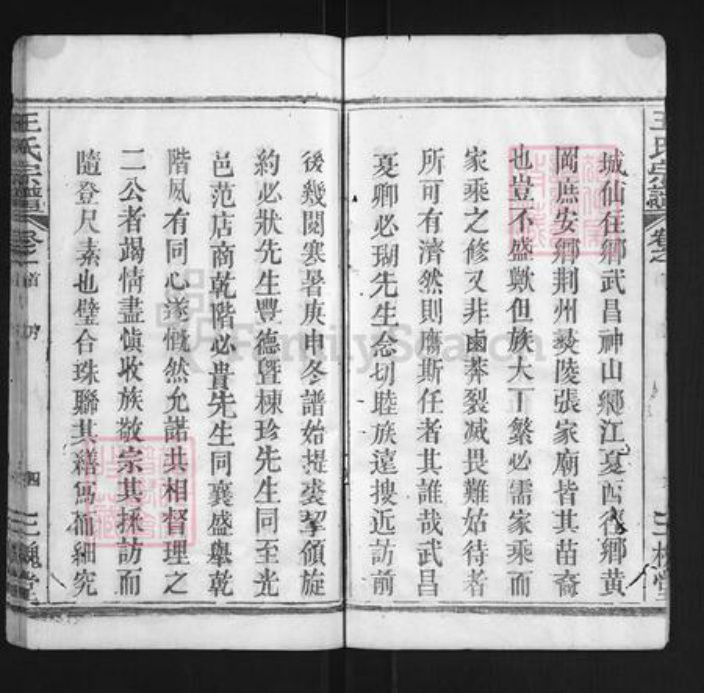 王氏宗譜
卷之
城仙在鄉武昌神山鄉江夏西鄉黃
岡庶安鄉荆州彝陵張家廟皆其苗裔
也豈不盛歟但族大丁繁必需家乘而
家乘之修又非鹵莽裂减畏難姑待者
所可有濟然則膺斯任者其誰哉武昌
夏卿必瑚先生念切睦族遠搜近訪前
後幾閱寒暑庚申冬譜始提裘挈領旋
約必狀先生豐德暨棟珍先生同至光
邑范店商乾階必貴先生同襄盛舉乾
階夙有同心遂慨然允諾共相督理之
二公者竭情盡愼收族敬宗其採訪而
隨登尺素也璧合珠聯其繕寫而細究
王氏宗譜
卷之首
四
三槐堂
FamilySearch